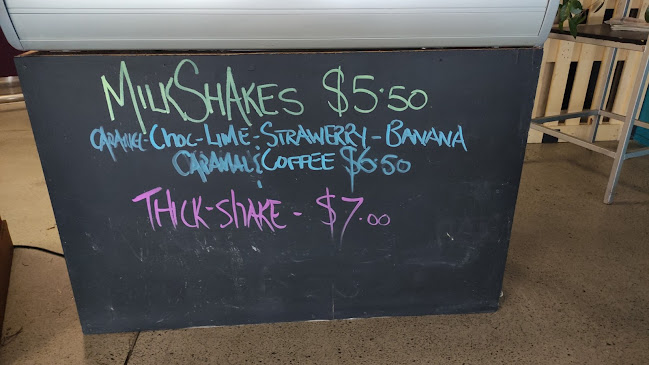 MILKSHAKES $5.50
CARAMEL-CHOC-LIME-STRAWERRY-BANANA
CARAMAL & COFFEE $6.50
THICK-SHAKE - $7.00